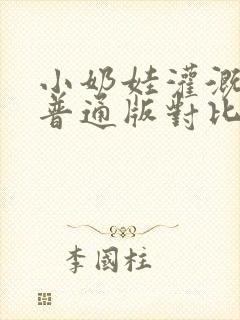 小奶娃灌溉
普通版對比
李國柱